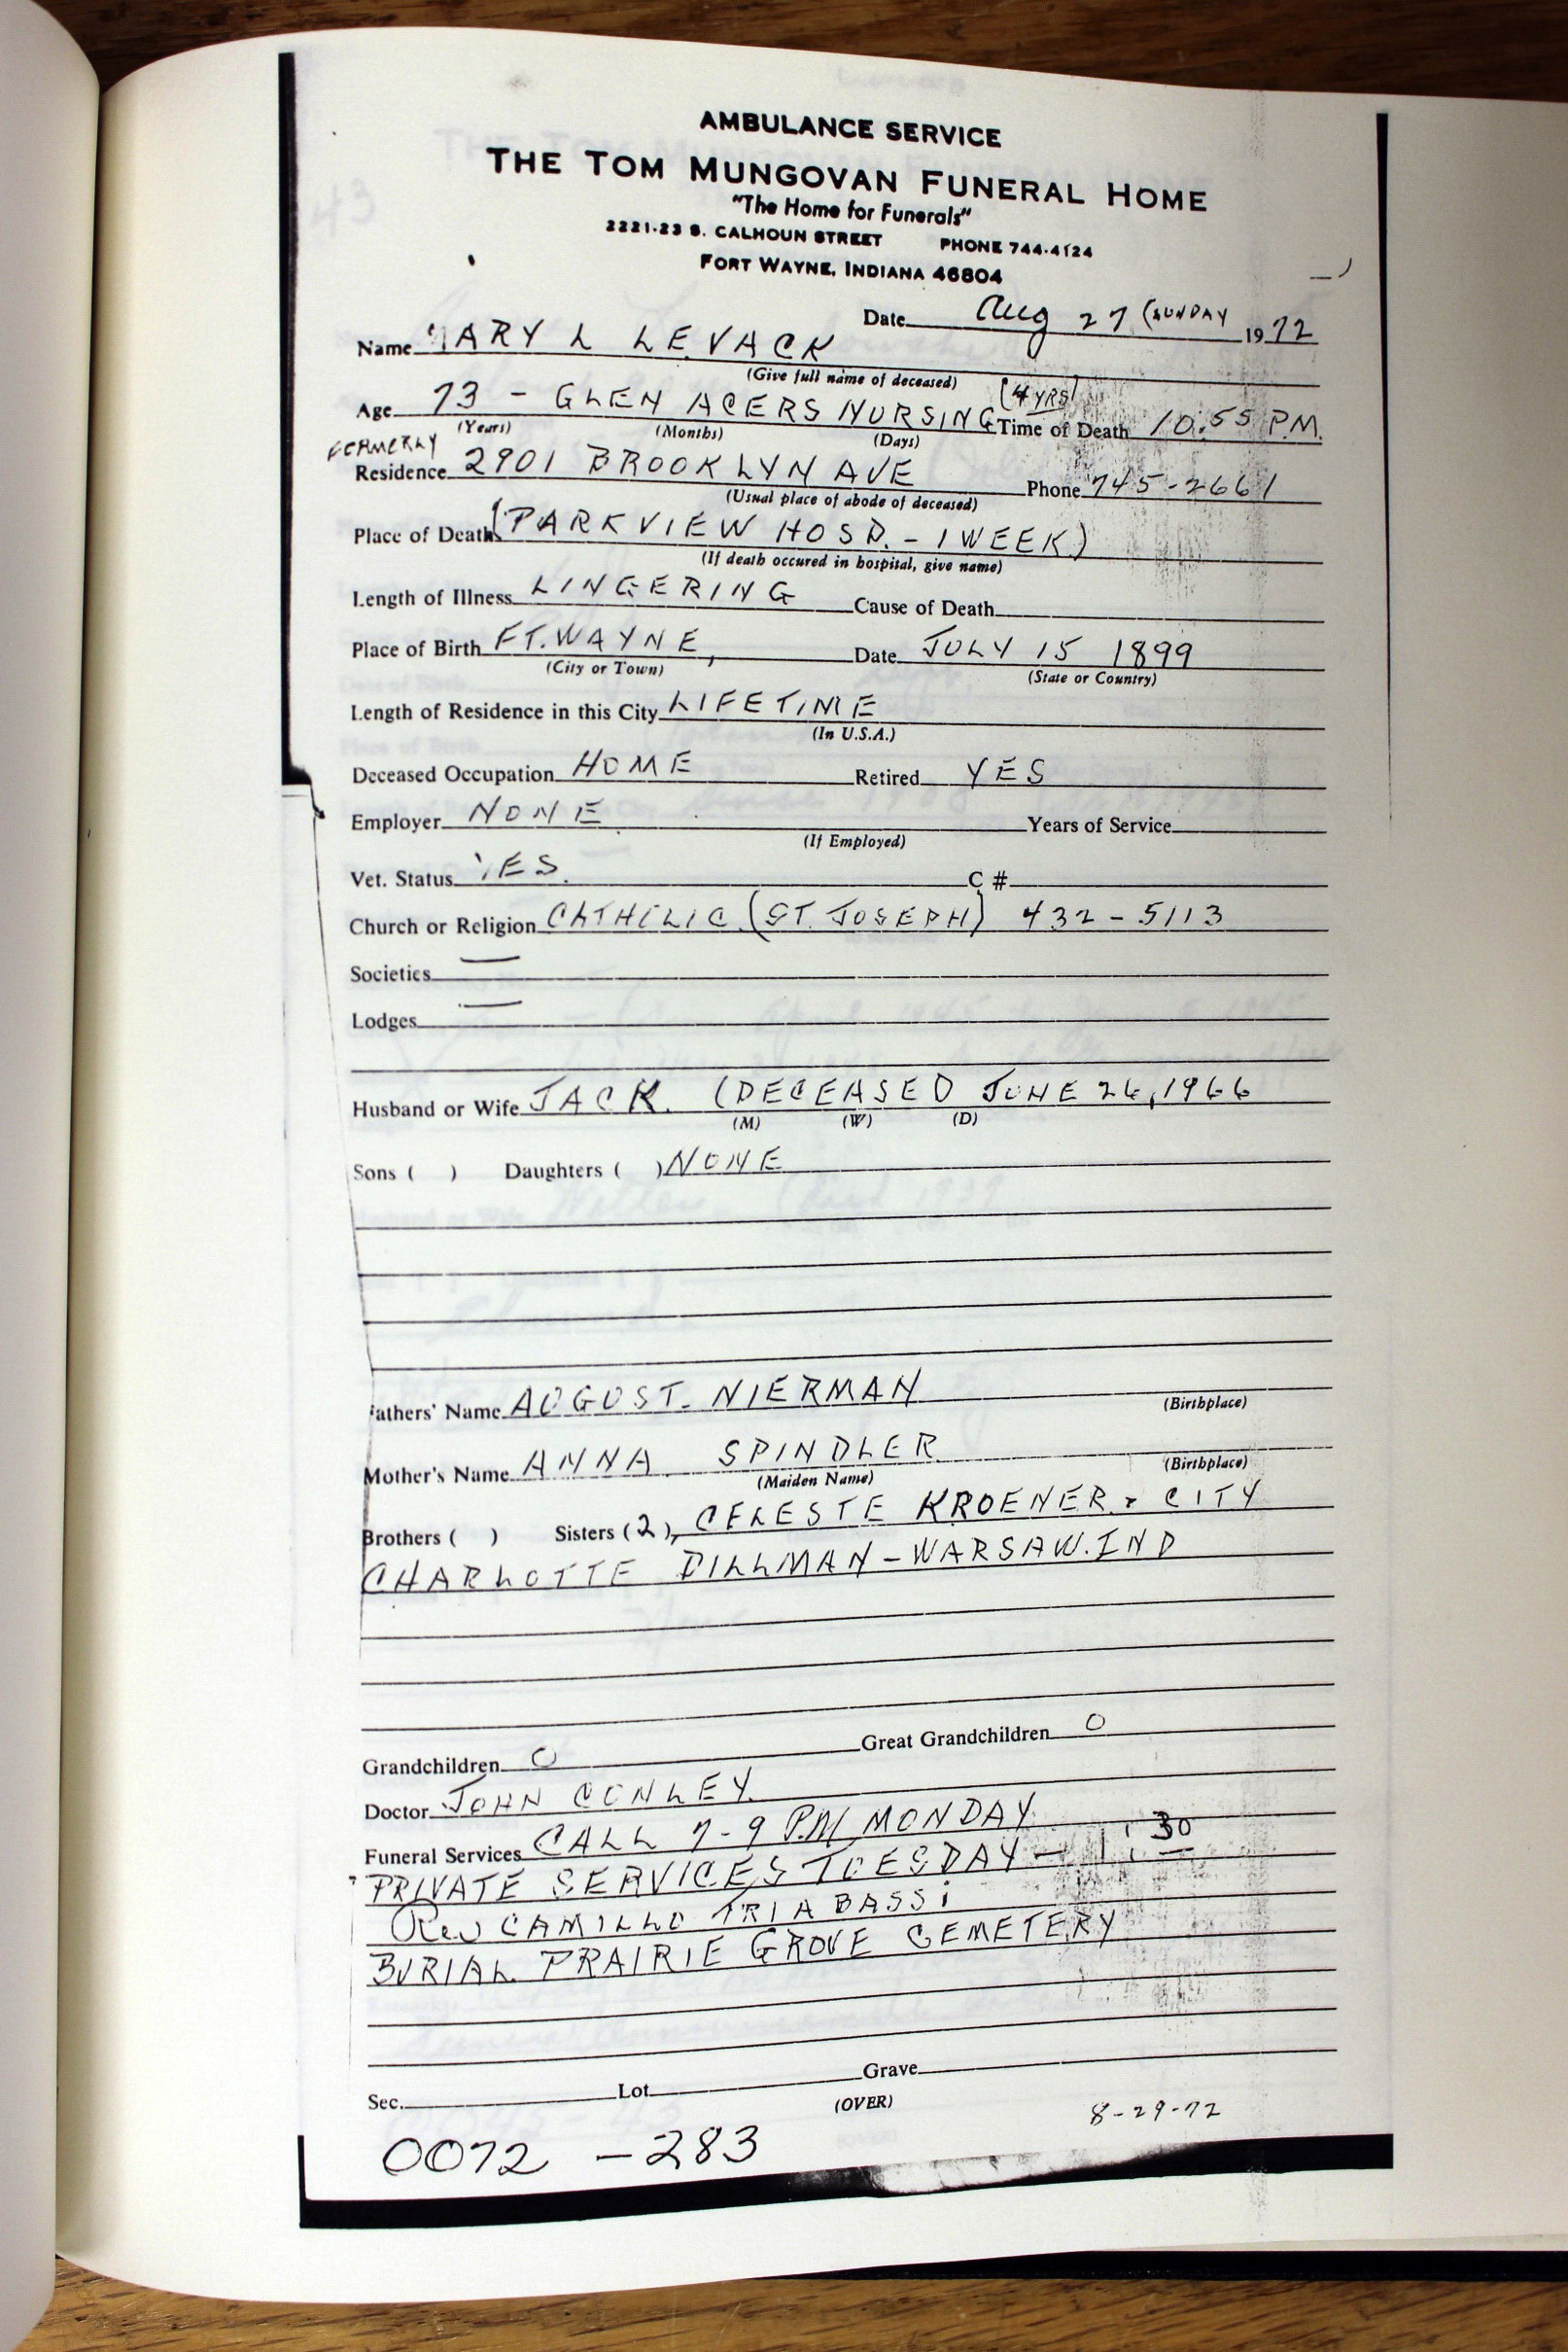 AMBULANCE SERVICE
THE TOM MUNGOVAN FUNERAL HOME
"The Home for Funerals"
2221-23 S. CALHOUN STREET PHONE 744-4124
FORT WAYNE, INDIANA 46804
Date Aug 27 (SUNDAY 1972
Name MARY L LEVACK
(Give full name of deceased)
Age 73 - GLEN ACERS NURSING (4 YRS) Time of Death 10:55 P.M.
(Years) (Months) (Days)
FORMERLY
Residence 2901 BROOKLYN AVE Phone 745-2661
(Usual place of abode of deceased)
Place of Death (PARKVIEW HOSP. - 1 WEEK)
(If death occured in hospital, give name)
Length of Illness LINGERING Cause of Death
Place of Birth FT. WAYNE, Date JULY 15 1899
(City or Town) (State or Country)
Length of Residence in this City LIFETIME
(In U.S.A.)
Deceased Occupation HOME Retired YES
Employer NONE Years of Service
(If Employed)
Vet. Status YES. C #
Church or Religion CATHOLIC (ST. JOSEPH) 432-5113
Societies —
Lodges —
Husband or Wife JACK. (DECEASED JUNE 26, 1966
(M) (W) (D)
Sons ( ) Daughters ( ) NONE
Fathers' Name AUGUST. NIERMAN
(Birthplace)
Mother's Name ANNA SPINDLER
(Maiden Name) (Birthplace)
Brothers ( ) Sisters (2), CELESTE KROENER - CITY
CHARLOTTE DILLMAN - WARSAW. IND
Grandchildren 0 Great Grandchildren 0
Doctor JOHN CONLEY.
Funeral Services CALL 7-9 P.M MONDAY
PRIVATE SERVICES TUESDAY - 1:30
Rev CAMILLO TRIABASSi
BURIAL PRAIRIE GROVE CEMETERY
Sec. Lot Grave
(OVER) 8-29-72
0072 - 283